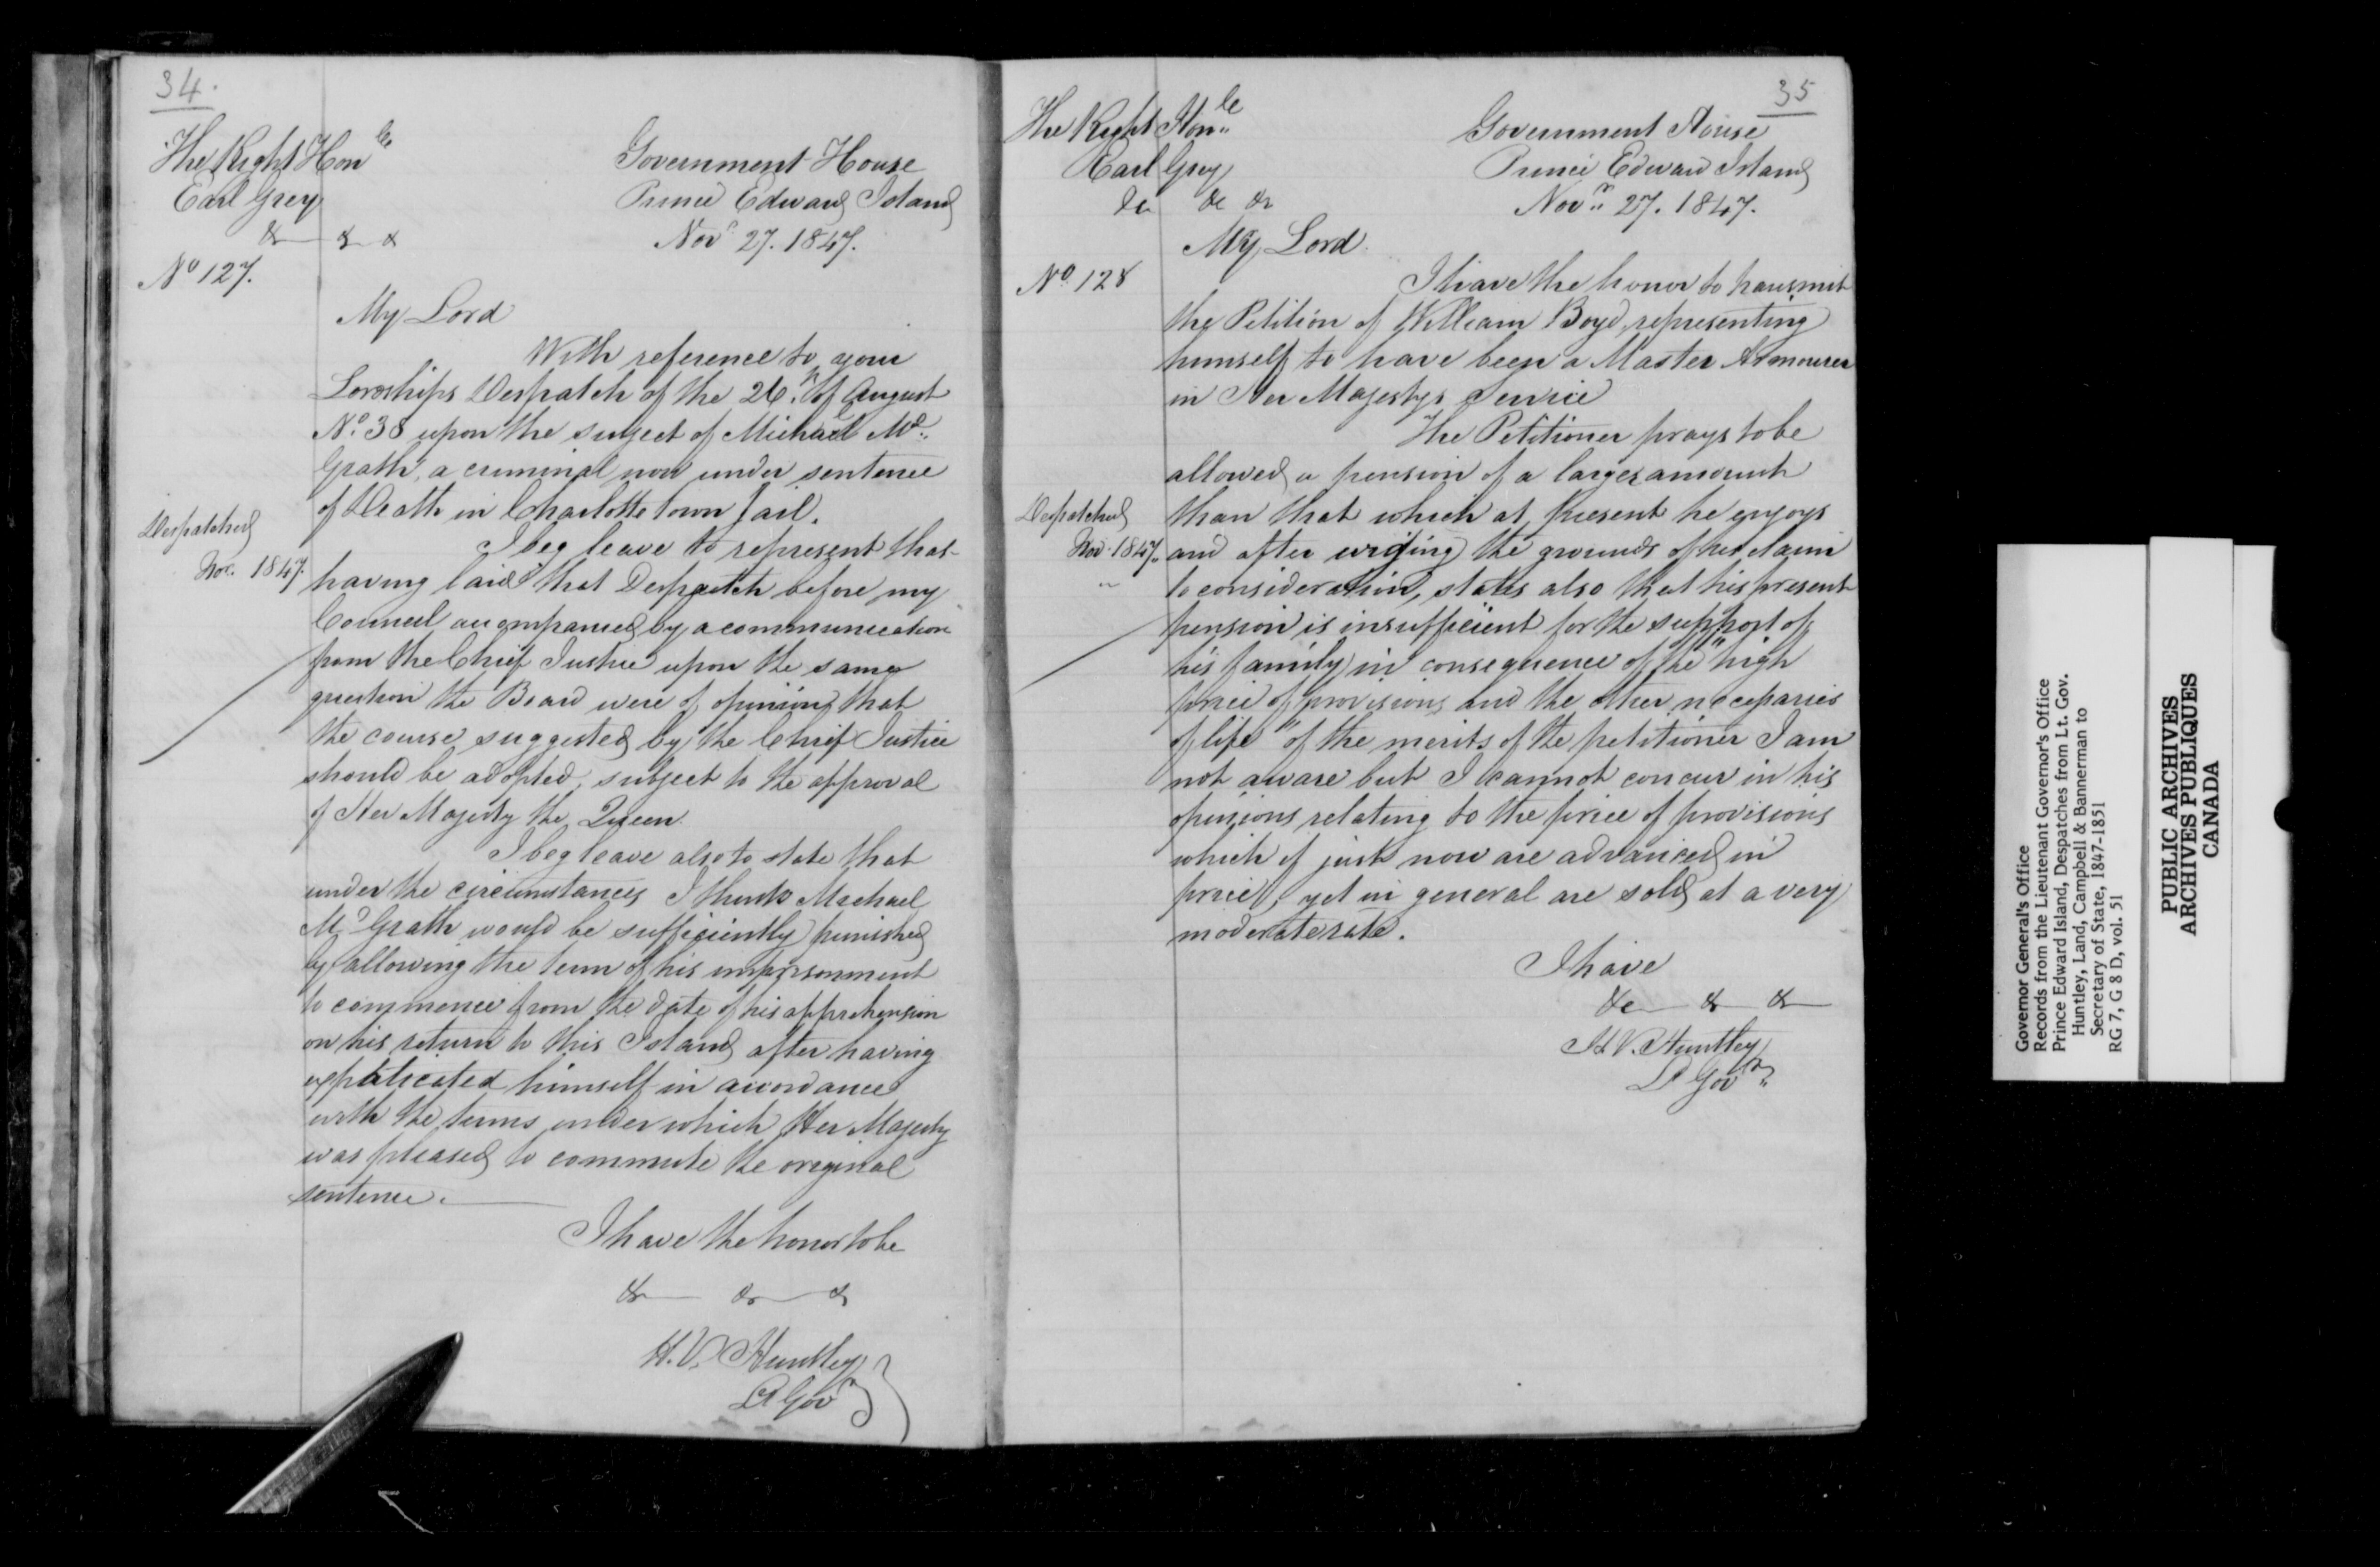 34.
The Right Honble
Earl Grey
& & &
No 127.
Government House
Prince Edward Island
Novr 27. 1847.
My Lord
With reference to your
Lordships Despatch of the 26th of August
No. 38 upon the subject of Michael Mc
Grath, a criminal now under sentence
of Death in Charlotte town Jail.
Despatched
Nov. 1847.
I beg leave to represent that
having laid that Despatch before my
Council accompanied by a communication
from the Chief Justice upon the same
question the Board were of opinion that
the course suggested by the Chief Justice
should be adopted, subject to the approval
of Her Majesty the Queen.
I beg leave also to state that
under the circumstances I think Michael
Mc Grath would be sufficiently punished
by allowing the term of his imprisonment
to commence from the date of his apprehension
on his return to this Island after having
expatriated himself in accordance
with the terms under which Her Majesty
was pleased to commute the original
sentence.
I have the honor to be
& & &
H. V. Huntley
Lt Govr
35
The Right Honle
Earl Grey
&c &c &c
No 128
Government House
Prince Edward Island
Novr 27. 1847.
My Lord
I have the honor to transmit
the Petition of William Boyd, representing
himself to have been a Master Armourer
in Her Majestys Service
The Petitioner prays to be
allowed a pension of a larger amount
Despatched
Nov. 1847.
than that which at present he enjoys
and after urging the grounds of his claim
to consideration, states also that his present
pension is insufficient for the support of
his family in consequence of the "high
price of provisions and the other necessaries
of life" of the merits of the petitioner I am
not aware but I cannot concur in his
opinions relating to the price of provisions
which if just now are advanced in
price, yet in general are sold at a very
moderate rate.
I have
&c & &
H. V. Huntley
Lt Govr
Governor General's Office
Records from the Lieutenant Governor's Office
Prince Edward Island, Despatches from Lt. Gov.
Huntley, Land, Campbell & Bannerman to
Secretary of State, 1847-1851
RG 7, G 8 D, vol. 51
PUBLIC ARCHIVES
ARCHIVES PUBLIQUES
CANADA